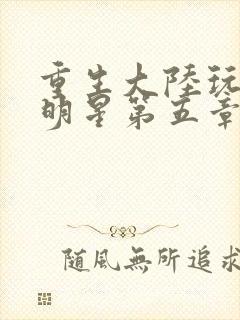 重生大陸玩
明星第五章
隨風無所追求